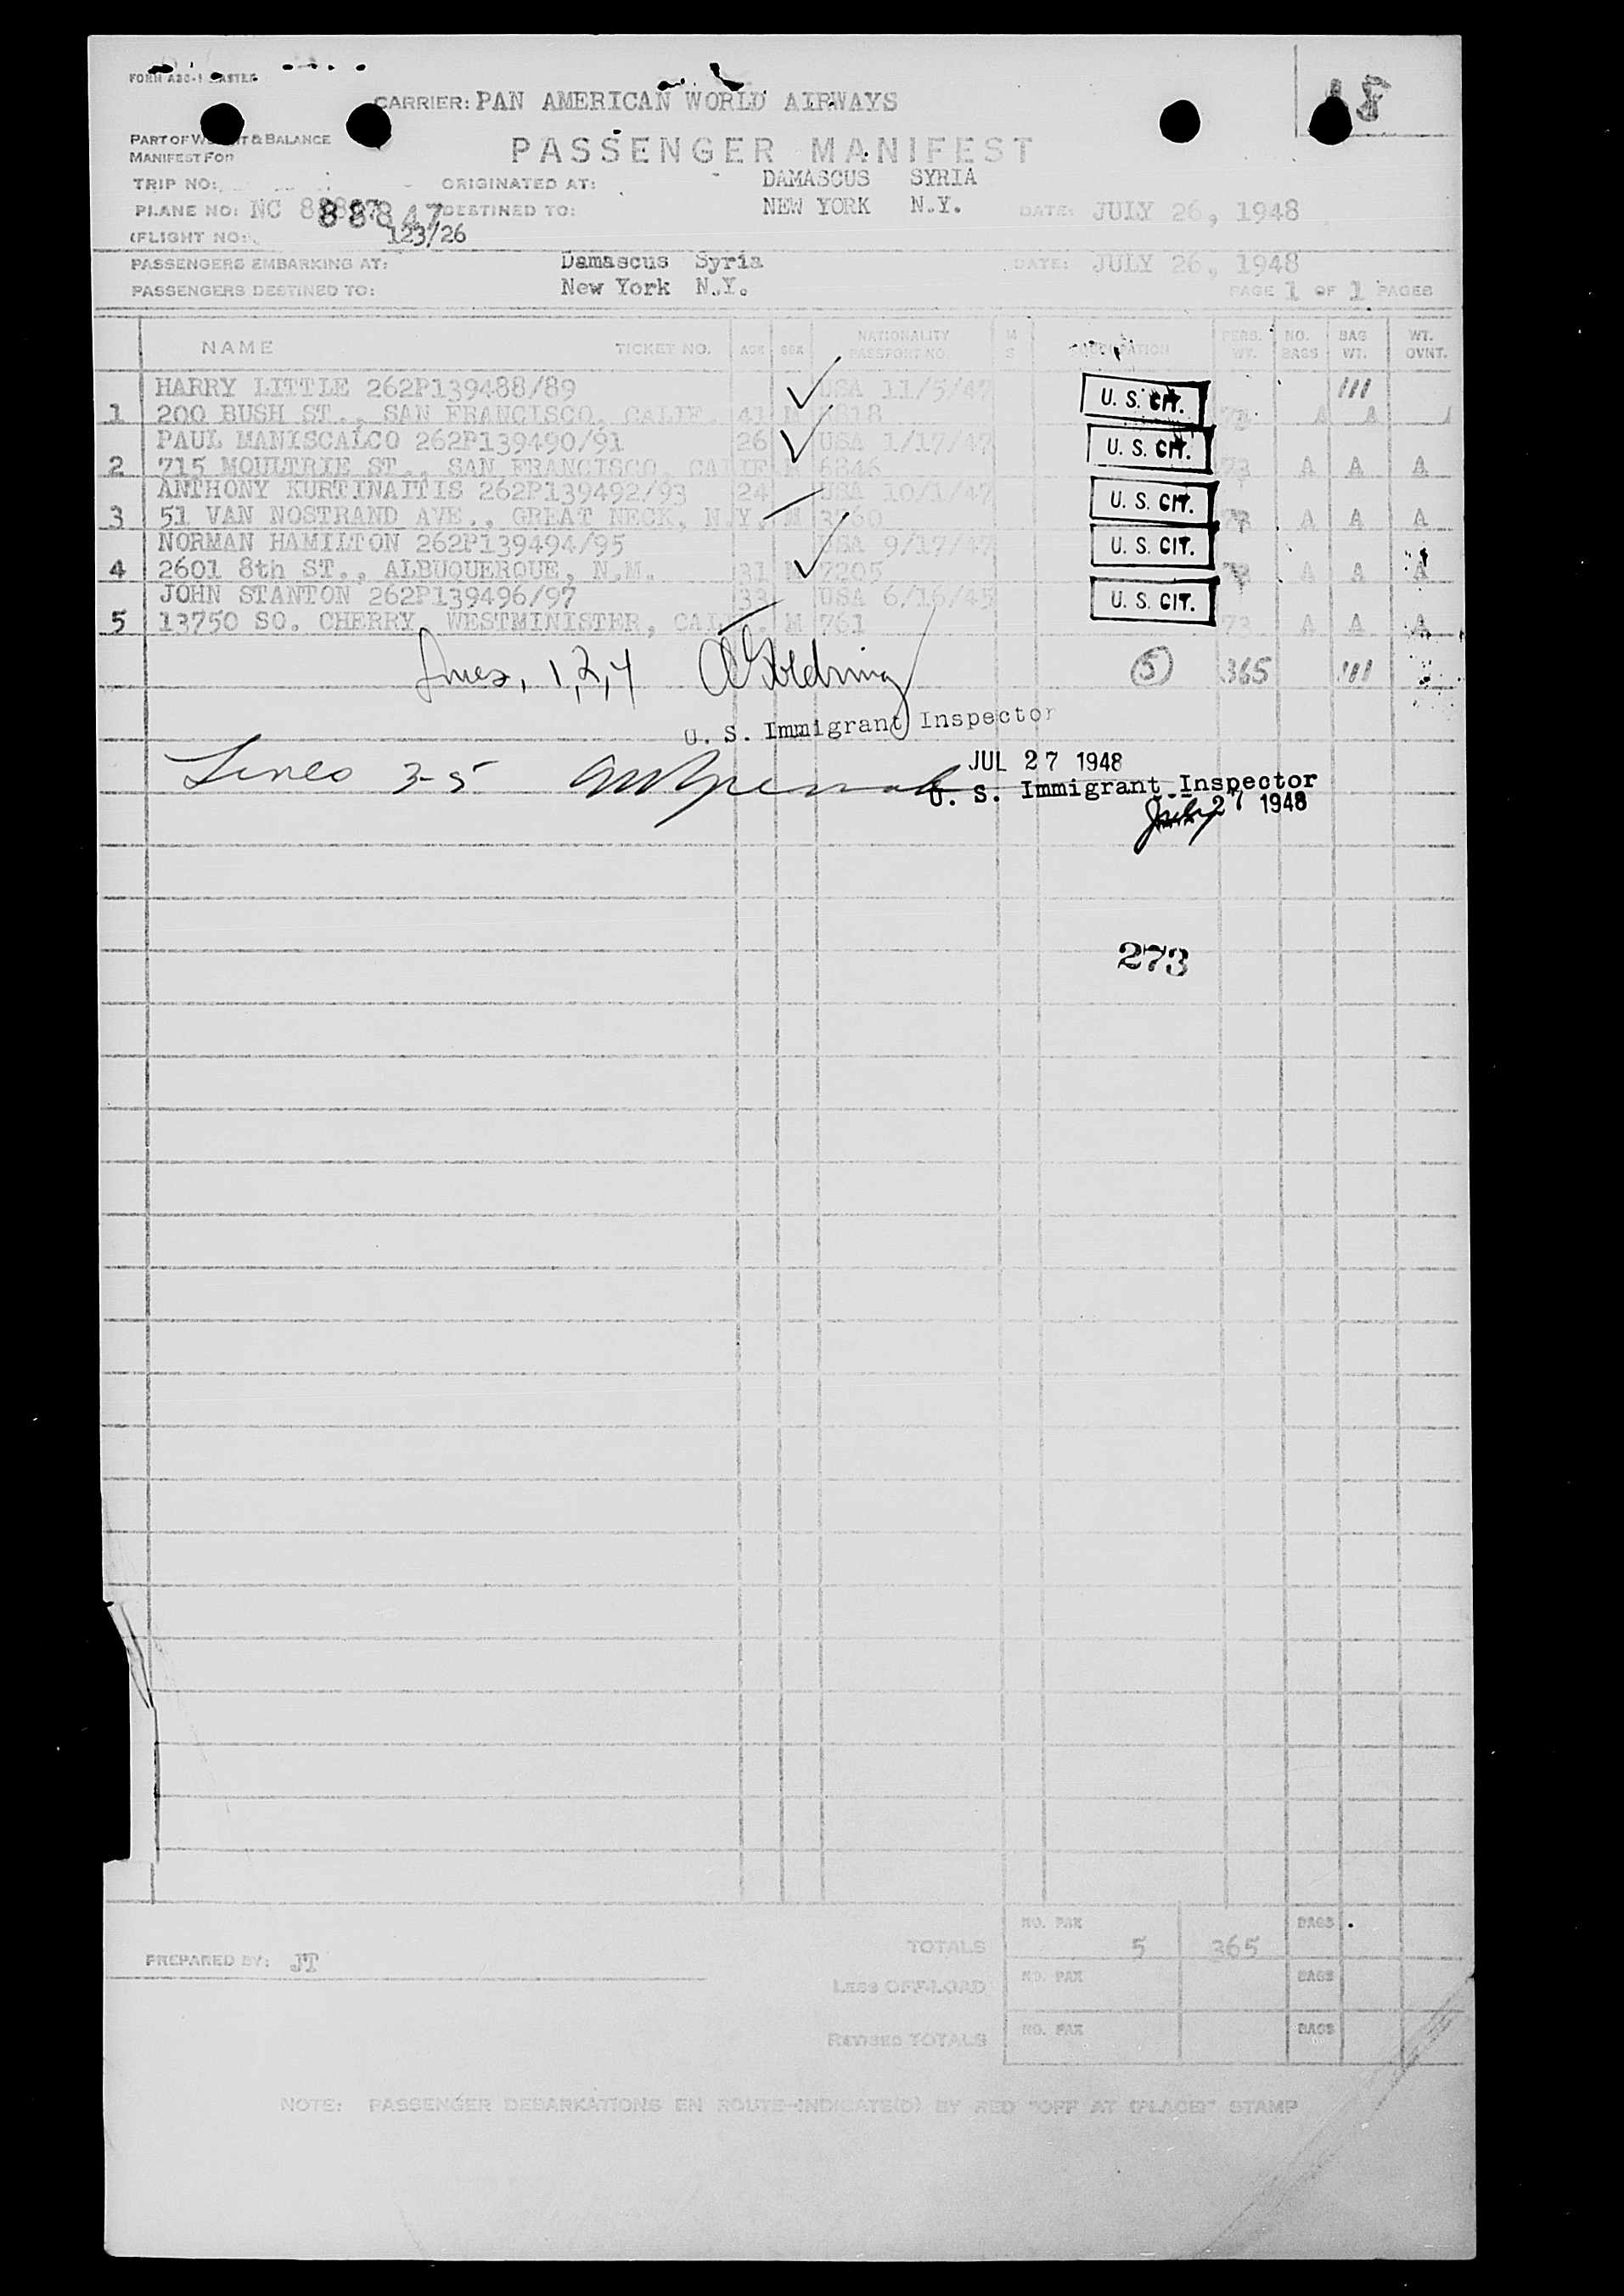 FORM ABC-1 MASTER
18
CARRIER: PAN AMERICAN WORLD AIRWAYS
PART OF WEIGHT & BALANCE
MANIFEST FOR
PASSENGER MANIFEST
TRIP NO: ORIGINATED AT: DAMASCUS SYRIA
PLANE NO: NC 88847 DESTINED TO: NEW YORK N.Y. DATE: JULY 26, 1948
(FLIGHT NO: 123/26
PASSENGERS EMBARKING AT: Damascus Syria DATE: JULY 26, 1948
PASSENGERS DESTINED TO: New York N.Y. PAGE 1 OF 1 PAGES
NAME TICKET NO. AGE SEX NATIONALITY PASSPORT NO. M S OCCUPATION PERS. WT. NO. BAGS BAG WT. WT. OVNT.
HARRY LITTLE 262P139488/89 USA 11/5/47 U. S. CIT. 111
1 200 BUSH ST., SAN FRANCISCO, CALIF. 41 M A A
PAUL MANISCALCO 262P139490/91 26 USA 1/17/47 U. S. CIT.
2 715 MOULTRIE ST., SAN FRANCISCO, CALIF M 6846 73 A A A
ANTHONY KURTINAITIS 262P139492/93 24 USA 10/1/47 U. S. CIT.
3 51 VAN NOSTRAND AVE., GREAT NECK, N.Y. M 3760 A A A
NORMAN HAMILTON 262P139494/95 USA 9/17/47 U. S. CIT.
4 2601 8th ST., ALBUQUERQUE, N.M. 31 M 7205 A A A
JOHN STANTON 262P139496/97 33 USA 6/16/45 U. S. CIT.
5 13750 SO. CHERRY, WESTMINISTER, CALIF. M 761 73 A A A
Lines, 1,2,4 A Goldring 5 365 111
U. S. Immigrant Inspector
JUL 27 1948
Lines 3-5
U. S. Immigrant Inspector
July 27 1948
273
TOTALS NO. PAX 5 365 BAGS
PREPARED BY: JT
Less OFF-LOAD NO. PAX BAGS
REVISED TOTALS NO. PAX BAGS
NOTE: PASSENGER DEBARKATIONS EN ROUTE-INDICATE(D) BY RED "OFF AT (PLACE)" STAMP